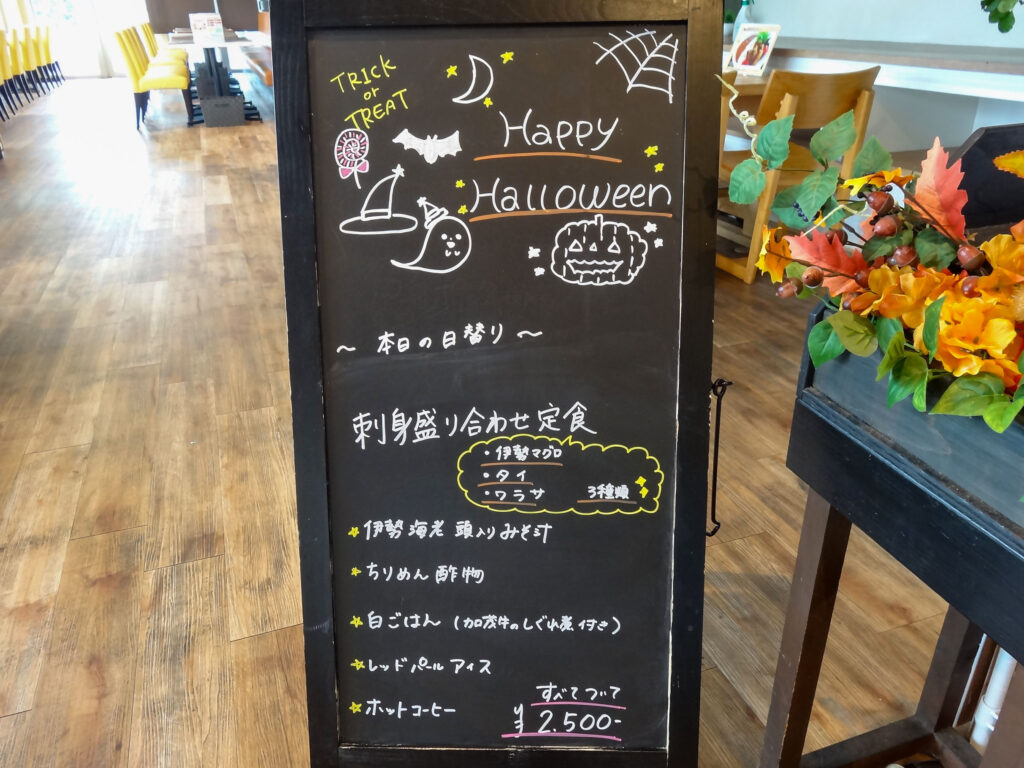 TRICK
or
TREAT
Happy
Halloween
～ 本日の日替り ～
刺身盛り合わせ定食
・伊勢マグロ
・タイ
・ワラサ 3種類
伊勢海老 頭入りみそ汁
ちりめん酢物
白ごはん (加茂牛のしぐれ煮付き)
レッドパールアイス
ホットコーヒー
すべてついて
¥2.500-